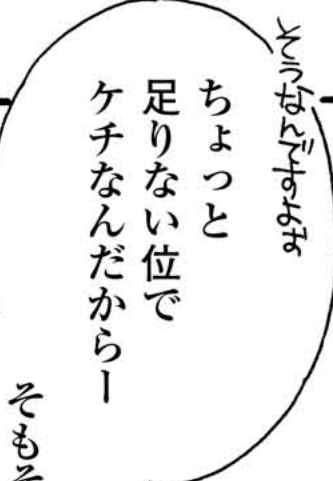 そうなんですよす
ちょっと
足りない位で
ケチなんだからー
そもそ